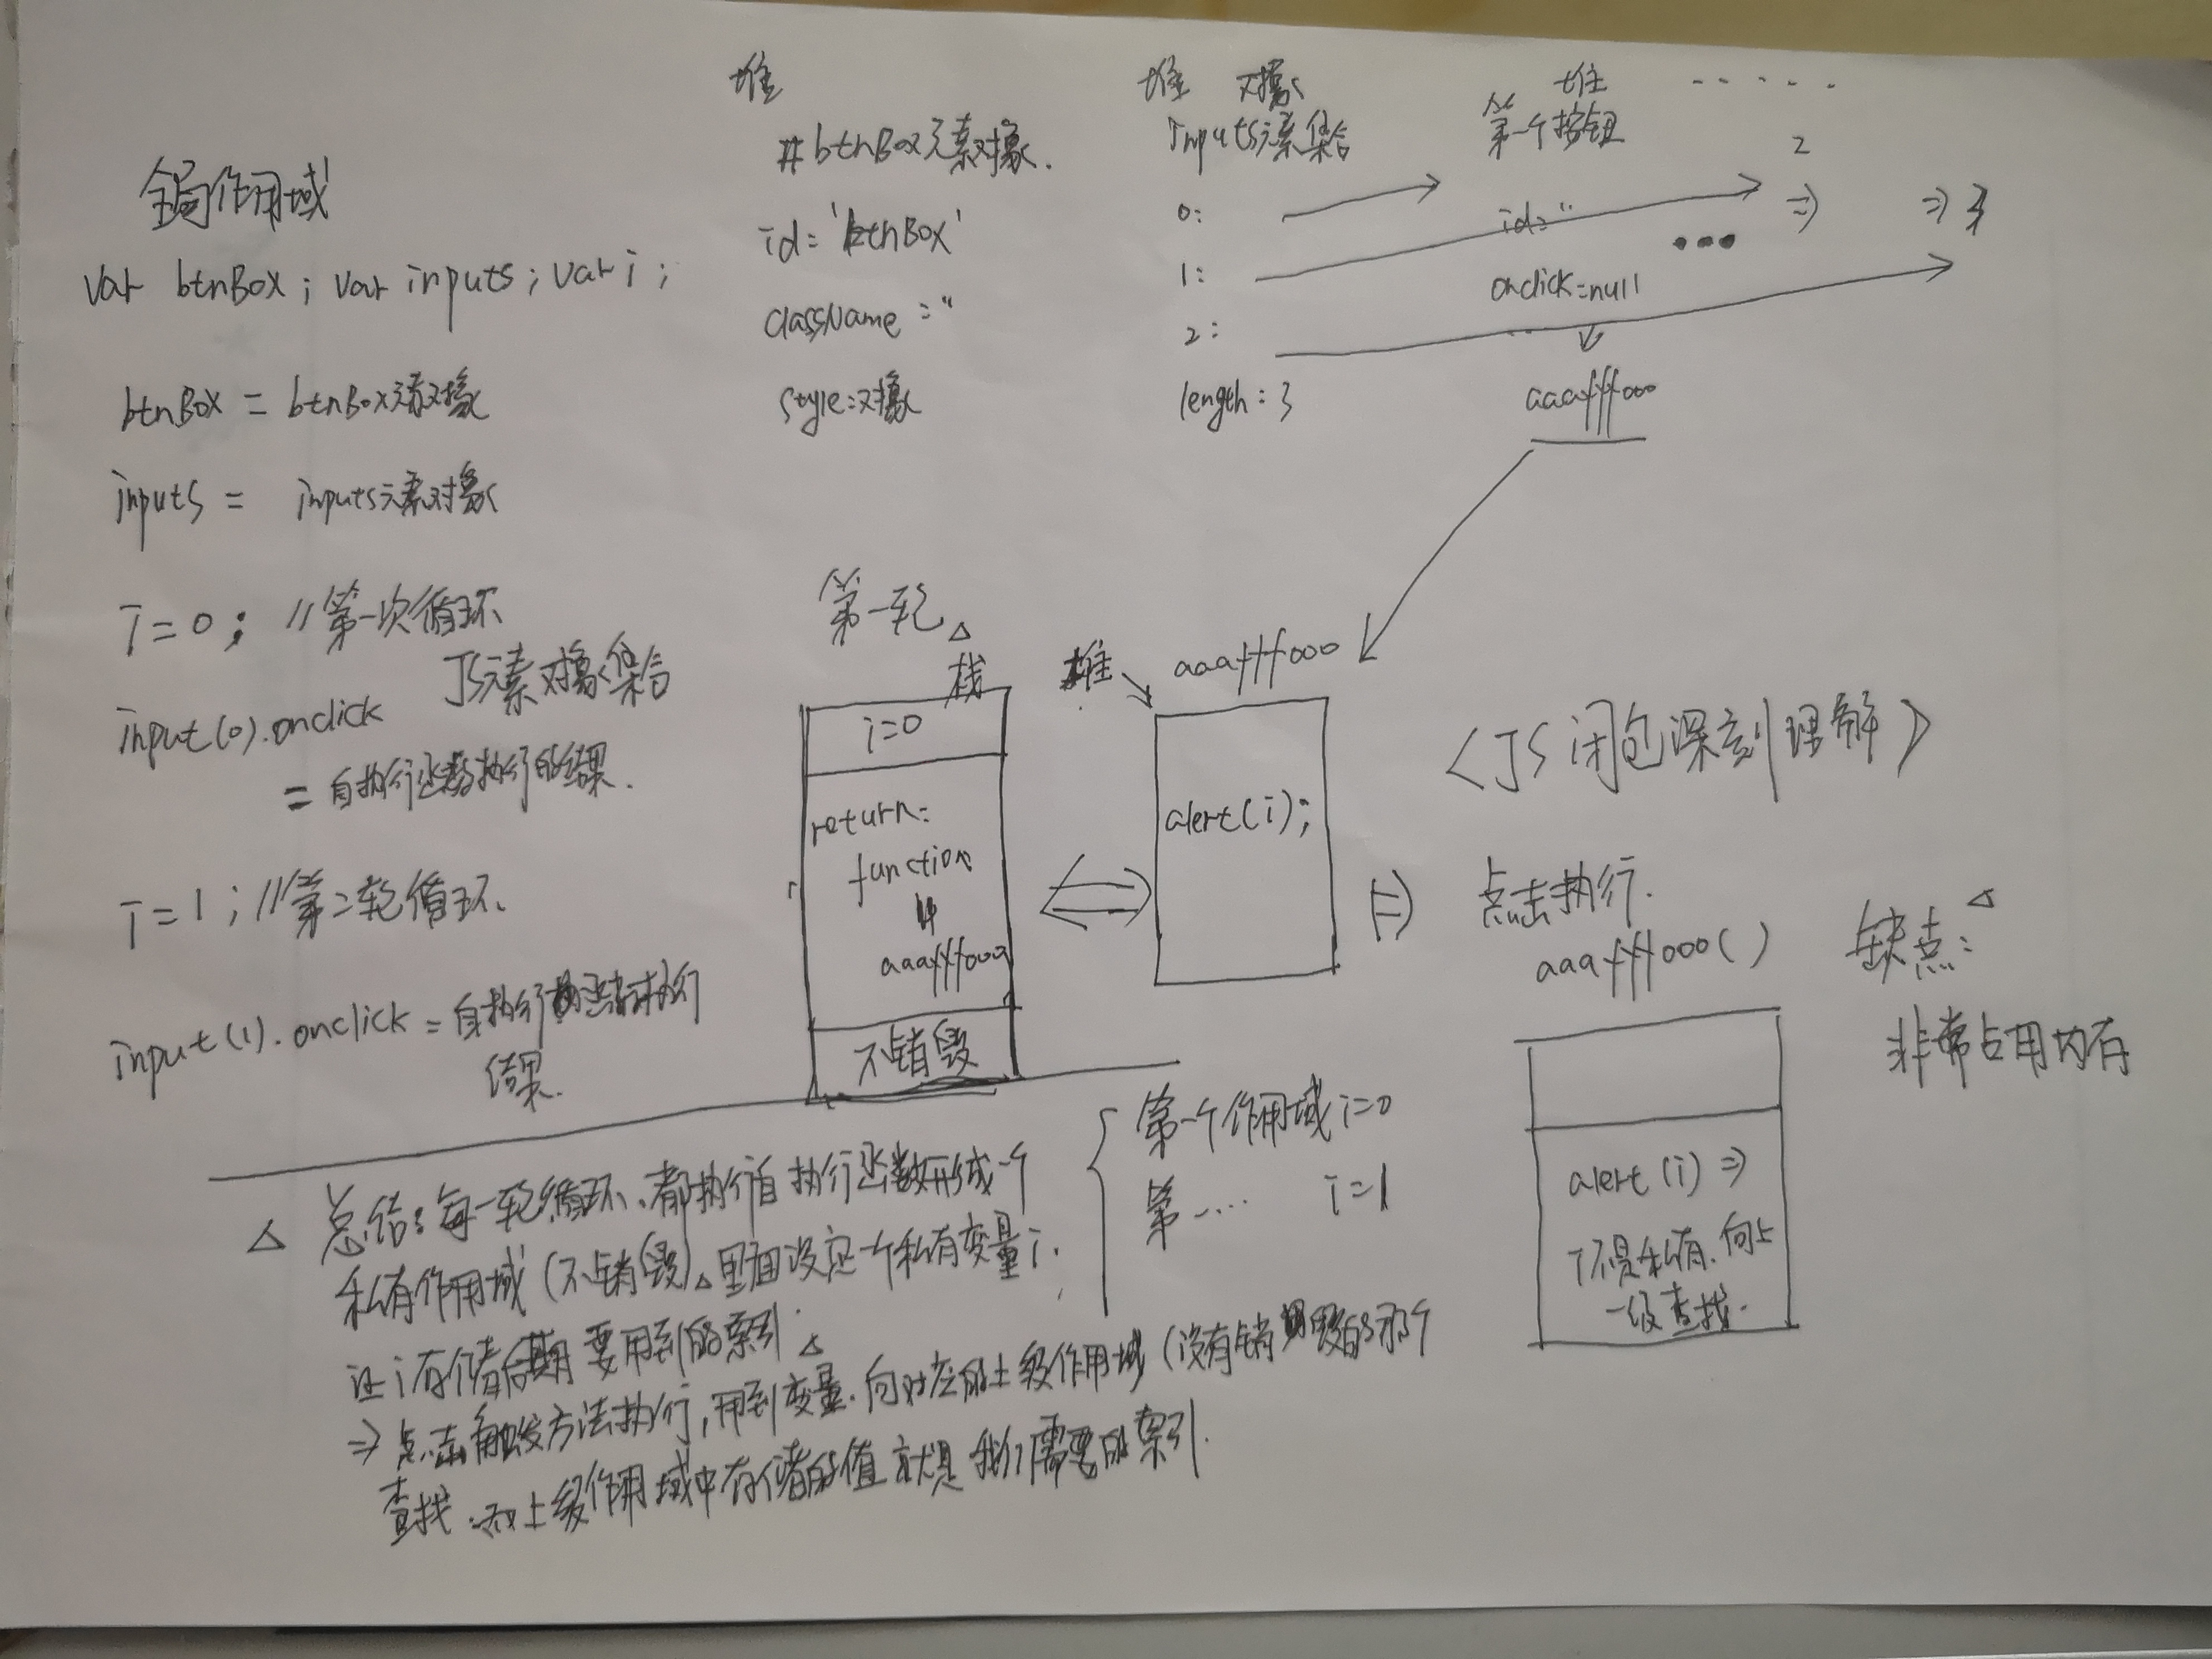 全局作用域
var btnBox; var inputs; var i;
btnBox = btnBox元素对象
inputs = inputs元素对象
i=0; //第一次循环
JS元素对象集合
input(0).onclick
= 自执行函数执行的结果.
i=1; //第二轮循环.
input(1).onclick = 自执行函数执行
结果.
堆
#btnBox元素对象.
id='btnBox'
className=''
style:对象
堆 对象
inputs元素集合
0:
1:
2:
length:3
堆 ......
第一个按钮
2
id=''
⇒ ⇒ 3
...
onclick=null
aaafff000
第一轮△
栈
i=0
return:
function
aaafff000
不销毁
堆
aaafff000
alert(i);
<JS闭包深刻理解>
点击执行.
aaafff000()
alert(i)⇒
i不是私有.向上
一级查找.
缺点:△
非常占用内存
△ 总结:每一轮循环、都执行自执行函数形成一个
私有作用域(不销毁)△里面设定一个私有变量i.
让i存储后期要用到的索引.
⇒点击触发方法执行,用到变量.向对应的上级作用域(没有销毁的那个
查找.而上级作用域中存储的值就是我们需要的索引.
第一个作用域i=0
第一.... i=1